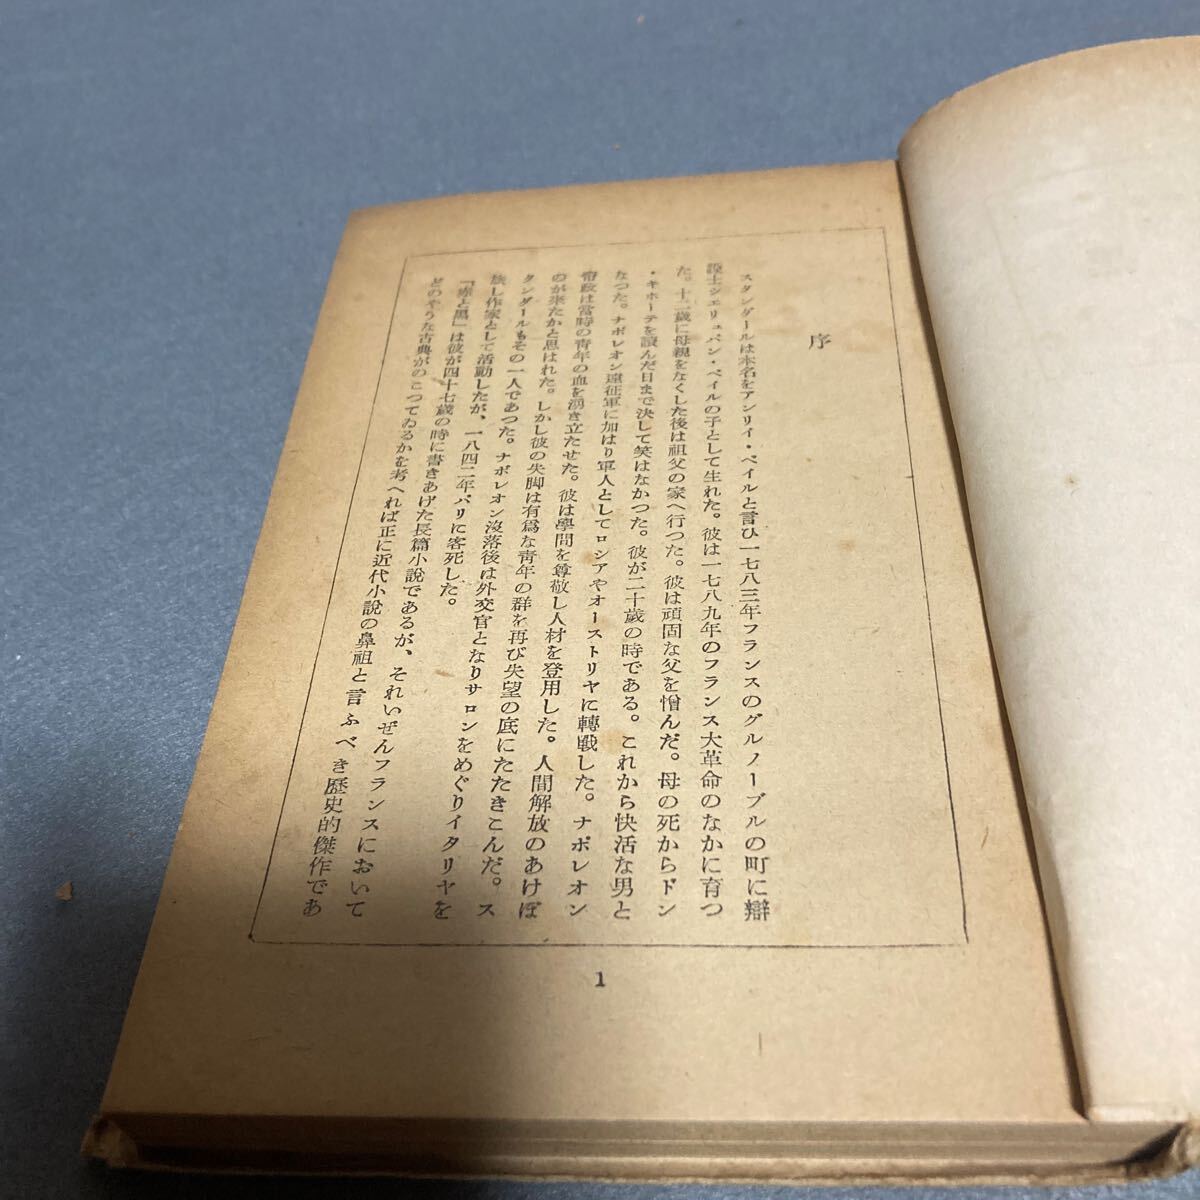 序
スタンダールは本名をアンリイ・ベイルと言ひ一七八三年フランスのグルノーブルの町に辯
護士シエリュバン・ベイルの子として生れた。彼は一七八九年のフランス大革命のなかに育つ
た。十二歳に母親をなくした後は祖父の家へ行つた。彼は頑固な父を憎んだ。母の死からドン
・キホーテを讀んだ日まで決して笑はなかつた。彼が二十歳の時である。これから快活な男と
なつた。ナポレオン遠征軍に加はり軍人としてロシアやオーストリヤに轉戰した。ナポレオン
帝政は當時の青年の血を湧き立たせた。彼は學問を尊敬し人材を登用した。人間解放のあけぼ
のが來たかと思はれた。しかし彼の失脚は有爲な青年の群を再び失望の底にたたきこんだ。ス
タンダールもその一人であつた。ナポレオン沒落後は外交官となりサロンをめぐりイタリヤを
旅し作家として活動したが、一八四二年パリに客死した。
「赤と黒」は彼が四十七歳の時に書きあげた長篇小說であるが、それいぜんフランスにおいて
どのやうな古典がのこつてゐるかを考へれば正に近代小說の鼻祖と言ふべき歷史的傑作であ
1